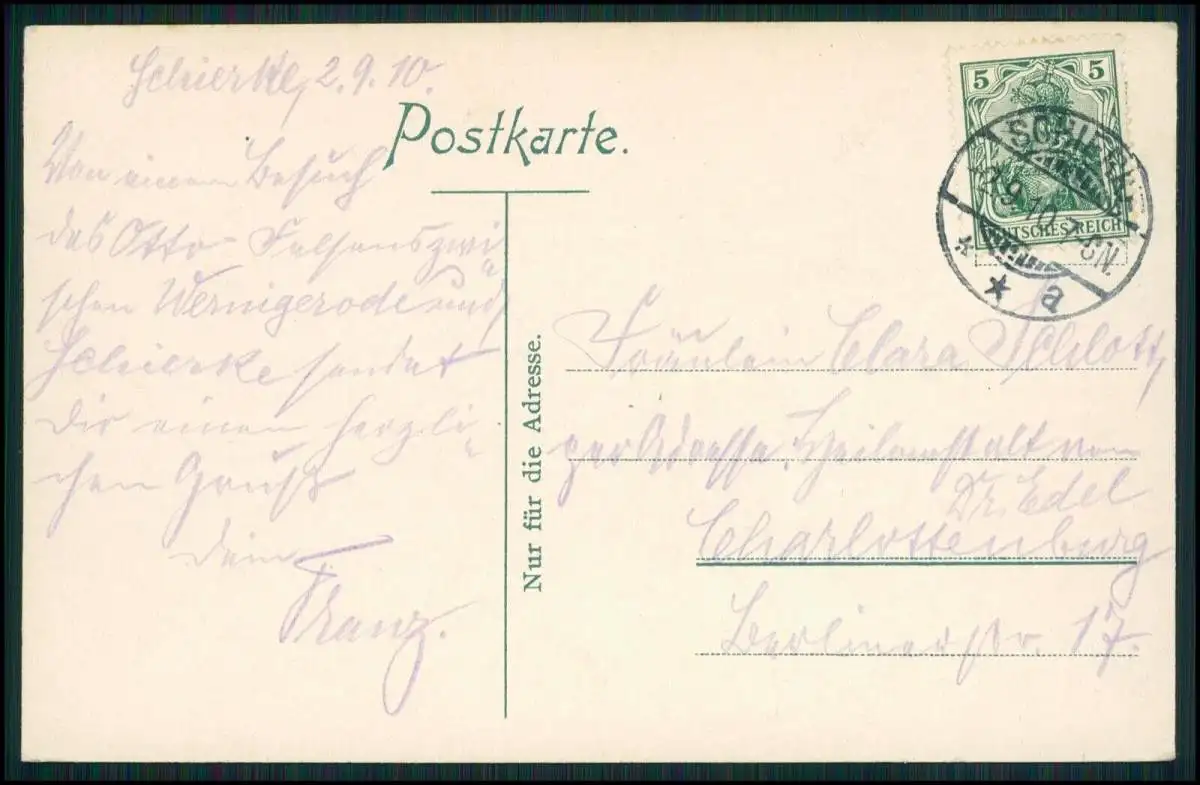 Schierke, 2.9.10.
Postkarte.
Von einem Besuch
des Otto-Felsens zwi„
schen Wernigerode und
Schierke sendet
Dir einen herzli„
chen Gruß
Dein
Franz.
Nur für die Adresse.
5 5
DEUTSCHES REICH
SCHIERKE
2.9.10.7-8N.
* * a
Fräulein Clara Schlott,
per Adresse. Heilanstalt von
Dr. Edel
Charlottenburg
Berlinerstr. 17.